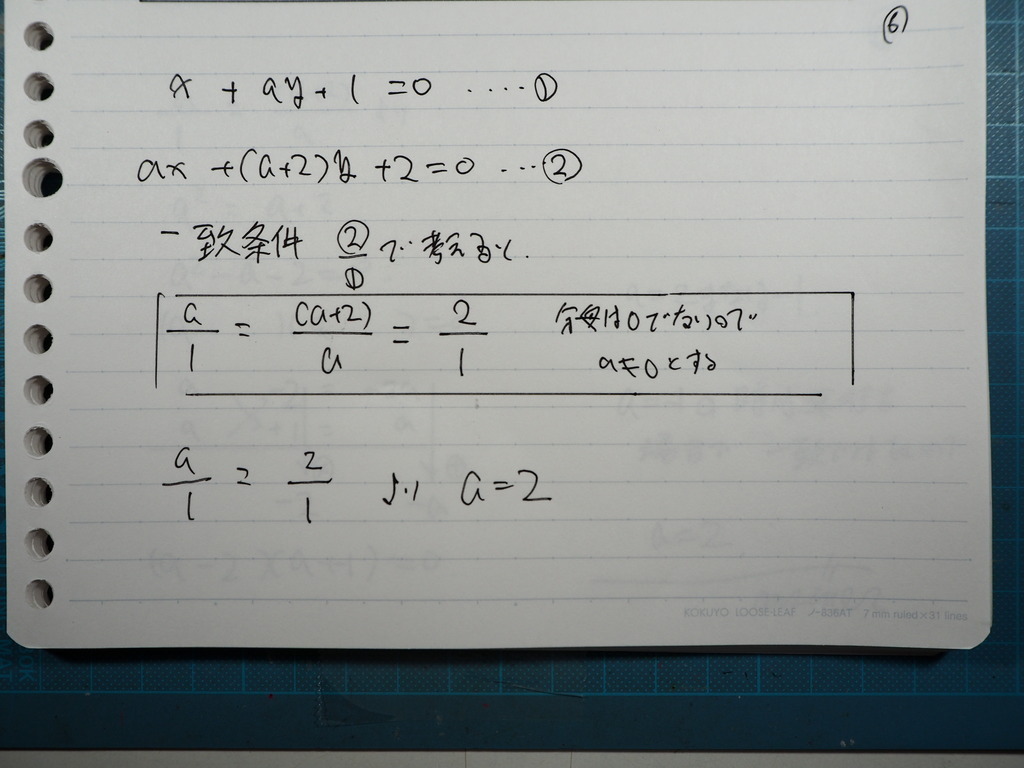 ⑥
x + ay + 1 = 0 ..... ①
ax + (a+2)y + 2 = 0 ... ②
一致条件 ②/① で考えると.
a/1 = (a+2)/a = 2/1 分母は0でないので
a≠0とする
a/1 = 2/1 より a = 2
KOKUYO LOOSE-LEAF ノ-836AT 7 mm ruled×31 lines